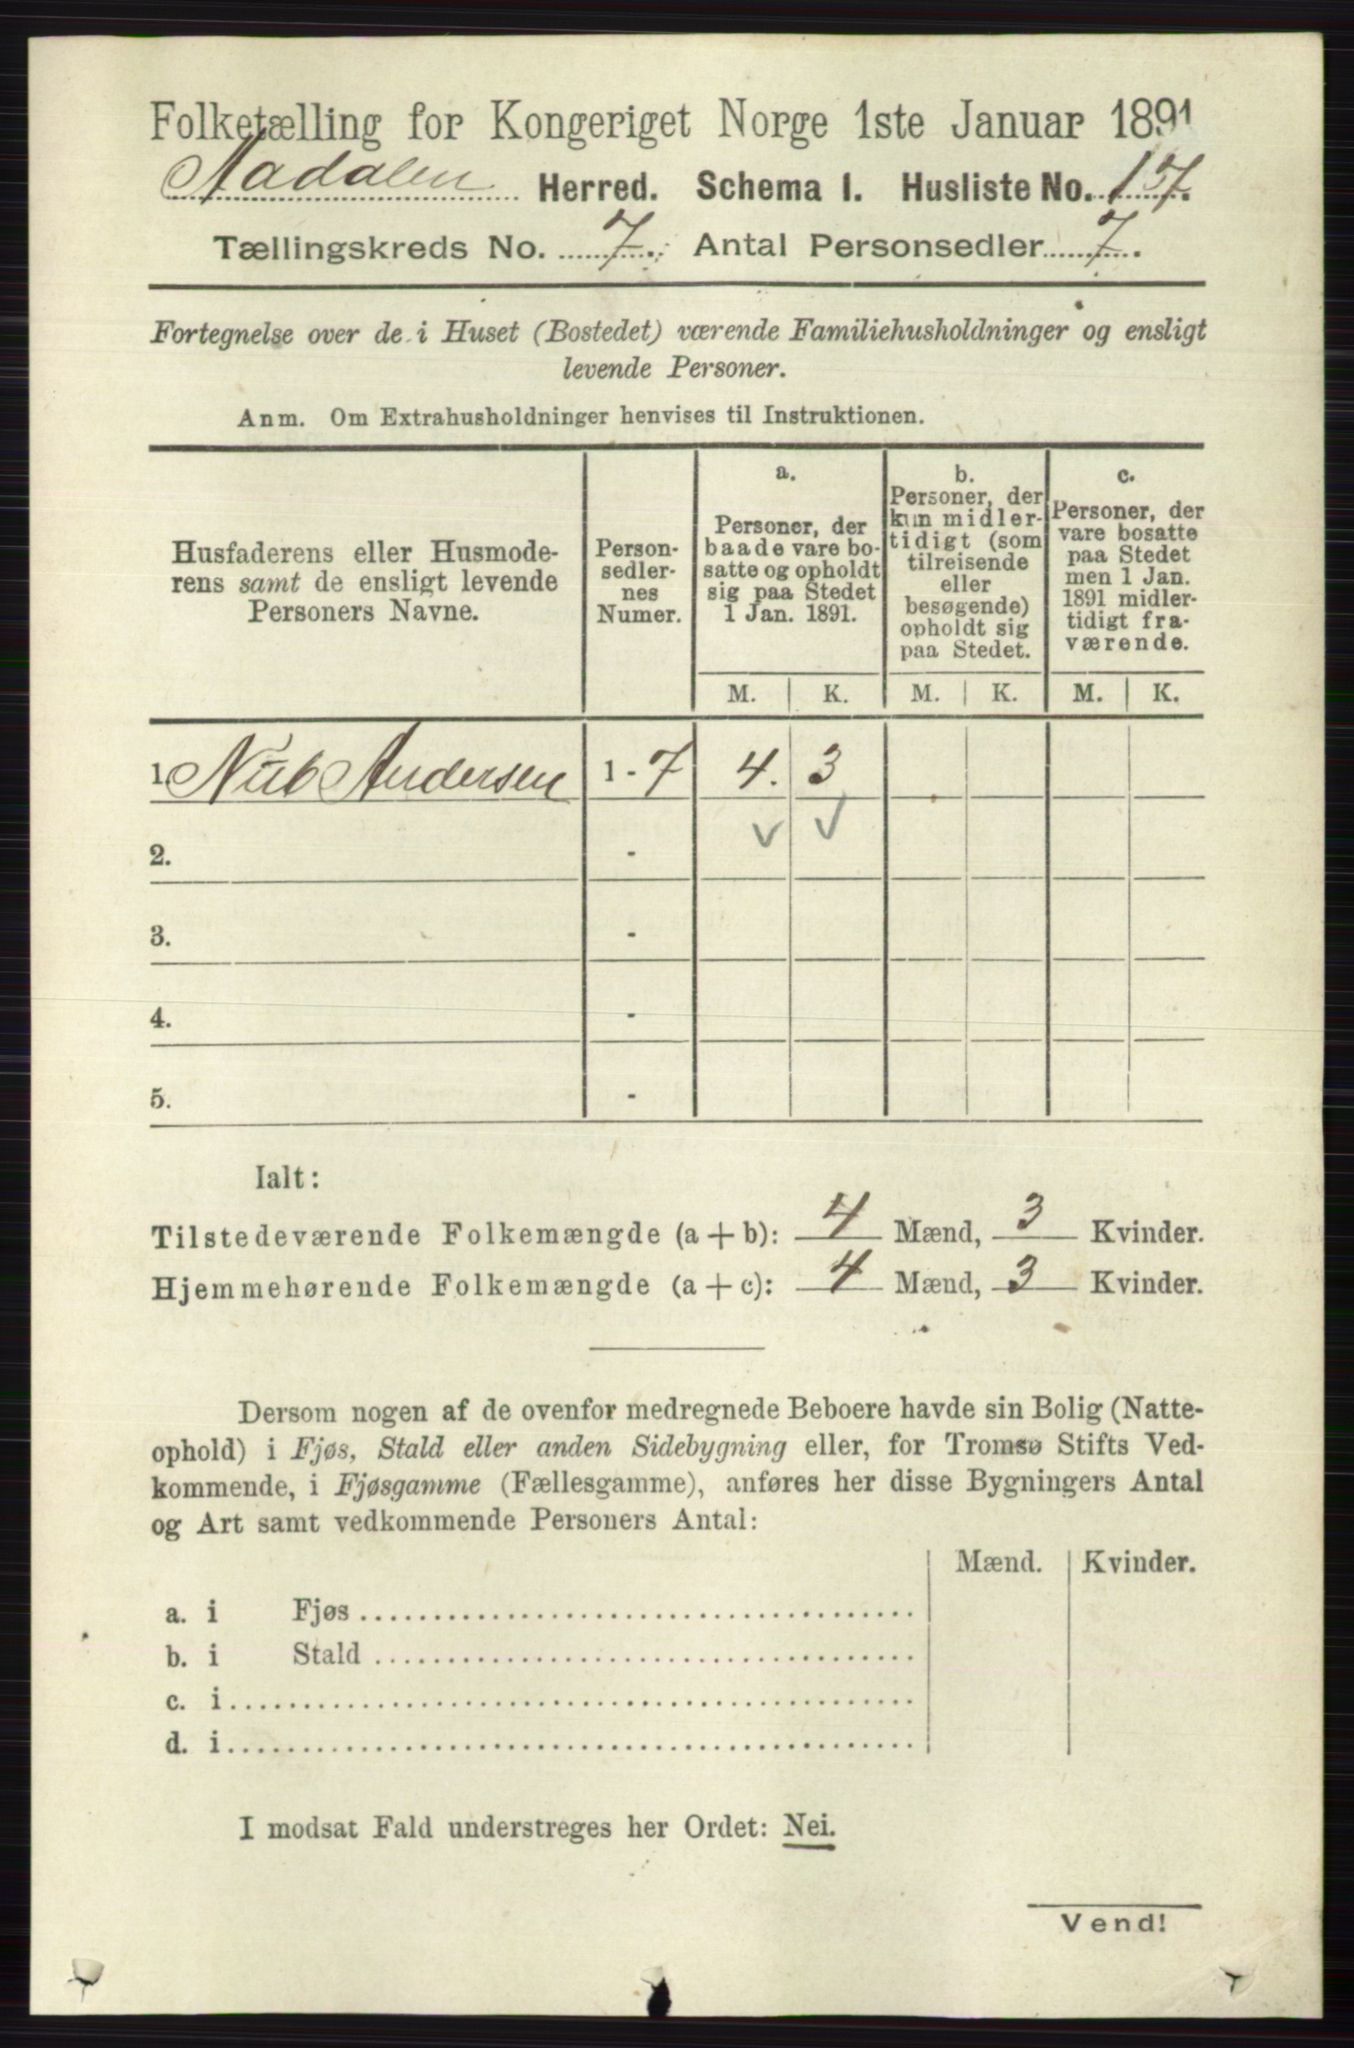 Folketælling for Kongeriget Norge 1ste Januar 1891
Aadalen Herred. Schema I. Husliste No. 157.
Tællingskreds No. 7. Antal Personsedler 7.
Fortegnelse over de i Huset (Bostedet) værende Familiehusholdninger og ensligt
levende Personer.
Anm. Om Extrahusholdninger henvises til Instruktionen.
Husfaderens eller Husmode-
rens samt de ensligt levende
Personers Navne.
Person-
sedler-
nes
Numer.
a.
Personer, der
baade vare bo-
satte og opholdt
sig paa Stedet
1 Jan. 1891.
b.
Personer, der
kun midler-
tidigt (som
tilreisende
eller
besøgende)
opholdt sig
paa Stedet.
c.
Personer, der
vare bosatte
paa Stedet
men 1 Jan.
1891 midler-
tidigt fra-
værende.
M. K. M. K. M. K.
1. Andersen 1 - 7 4. 3
2. -
3. -
4. -
5. -
Ialt:
Tilstedeværende Folkemængde (a + b): 4 Mænd, 3 Kvinder.
Hjemmehørende Folkemængde (a + c): 4 Mænd, 3 Kvinder.
Dersom nogen af de ovenfor medregnede Beboere havde sin Bolig (Natte-
ophold) i Fjøs, Stald eller anden Sidebygning eller, for Tromsø Stifts Ved-
kommende, i Fjøsgamme (Fællesgamme), anføres her disse Bygningers Antal
og Art samt vedkommende Personers Antal:
Mænd. Kvinder.
a. i Fjøs
b. i Stald
c. i
d. i
I modsat Fald understreges her Ordet: Nei.
Vend!